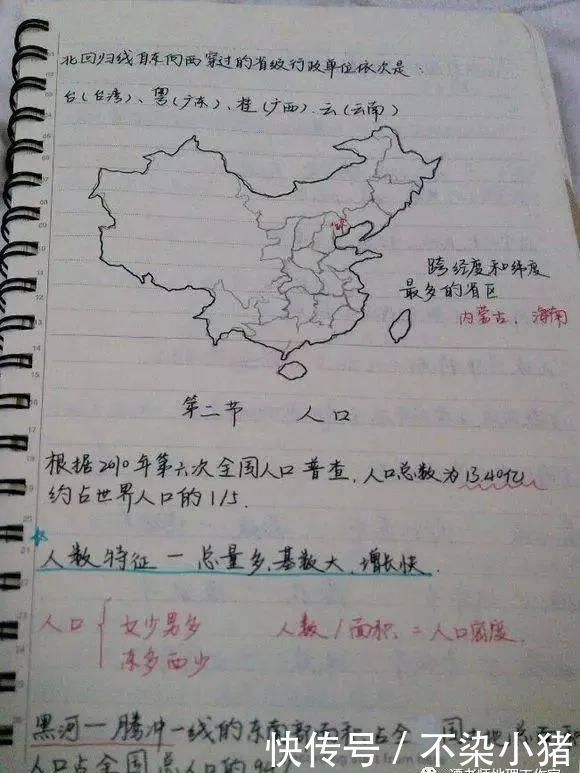 北回归线自东向西穿过的省级行政单位依次是:
台(台湾)、粤(广东)、桂(广西)、云(云南)
跨经度和纬度
最多的省区
内蒙古、海南
第二节 人口
根据2010年第六次全国人口普查,人口总数为13.40亿
约占世界人口的1/5.
人数特征—总量多,基数大,增长快.
人口 女少男多 人数/面积=人口密度.
东多西少
黑河—腾冲一线的东南部面积占全国
人口占全国总人口的9
快传号 / 不染小猪